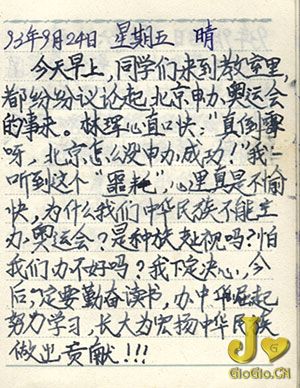 93年9月24日 星期五 晴
今天早上,同学们来到教室里,
都纷纷议论起北京申办奥运会
的事来。林琛心直口快:"真倒霉
呀,北京怎么没申办成功!"我一
听到这个"噩耗",心里真是不愉
快,为什么我们中华民族不能主
办奥运会?是种族歧视吗?怕
我们办不好吗?我下定决心,今
后,定要勤奋读书,为中华崛起
努力学习,长大为宏扬中华民族
做出贡献!!!
J
GioGio.CN